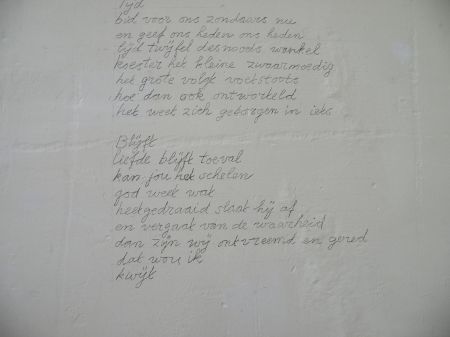 Tijd
bid voor ons zondaars nu
en geef ons heden ons heden
tijd twijfel desnoods wankel
koester het kleine zwaarmoedig
het grote volgt voetstoots
hoe dan ook ontworteld
het weet zich geborgen in iets
Blijft
liefde blijft toeval
kan jou het schelen
god weet wat
heetgedraaid slaat hij af
en vergaat van de waarheid
dan zijn wij ontvreemd en gered
dat wou ik
kwijt